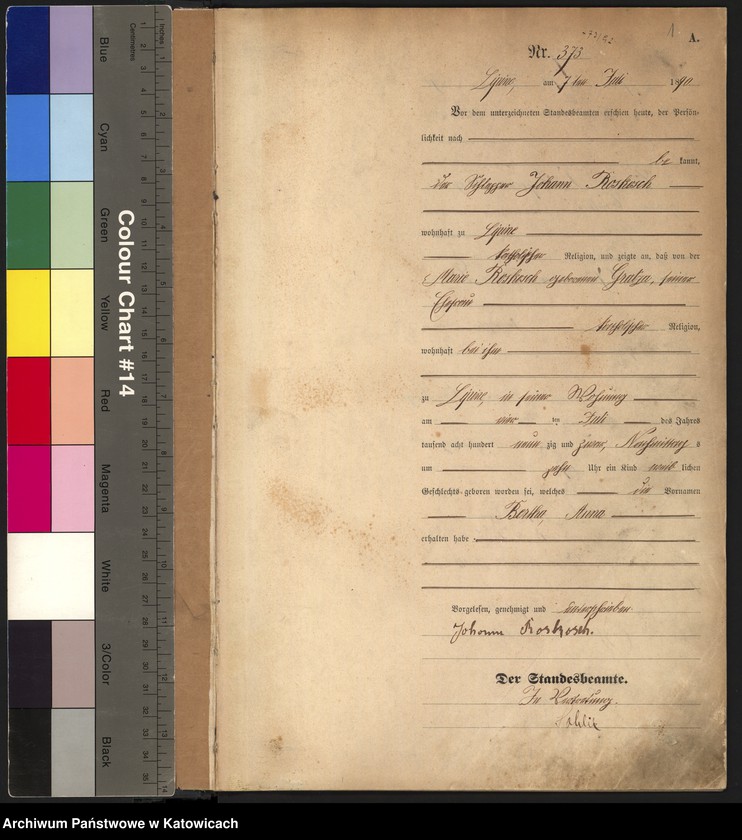 Inches
Centimetres
Colour Chart #14
Blue
Cyan
Green
Yellow
Red
Magenta
White
3/Color
Black
1
A.
Nr. 373
Lipine, am 7 ten Juli 1890
Vor dem unterzeichneten Standesbeamten erschien heute, der Persön-
lichkeit nach
be kannt,
der Schlepper Johann Roskosch
wohnhaft zu Lipine
katholischer Religion, und zeigte an, daß von der
Marie Roskosch geborenen Gratza, seiner
Ehefrau
katholischer Religion,
wohnhaft bei ihm
zu Lipine, in seiner Wohnung
am vier ten Juli des Jahres
tausend acht hundert neun zig und zwar, Nachmittag s
um zehn Uhr ein Kind weib lichen
Geschlechts geboren worden sei, welches die Vornamen
Bertha, Anna
erhalten habe
Vorgelesen, genehmigt und unterschrieben
Johann Roskosch.
Der Standesbeamte.
In Vertretung.
Archiwum Państwowe w Katowicach